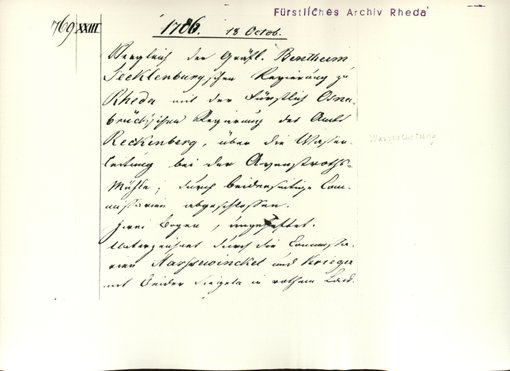 Fürstliches Archiv Rheda
769 XXIII 1786. 13 Octob.
Vergleich der Gräfl. Bentheim
Tecklenburgischen Regierung zu
Rheda mit der Fürstlich Osna-
brückischen Regierung des Amts
Reckenberg, über die Wasser-
leitung bei der Avenstroths-
Mühle; durch beiderseitige Com-
missarien abgeschlossen.
Zwei Bogen, ungeheftet.
Unterzeichnet durch die Commissa-
rien und Krieger
mit beider Siegeln in rothem Lack.
Wasserleitung